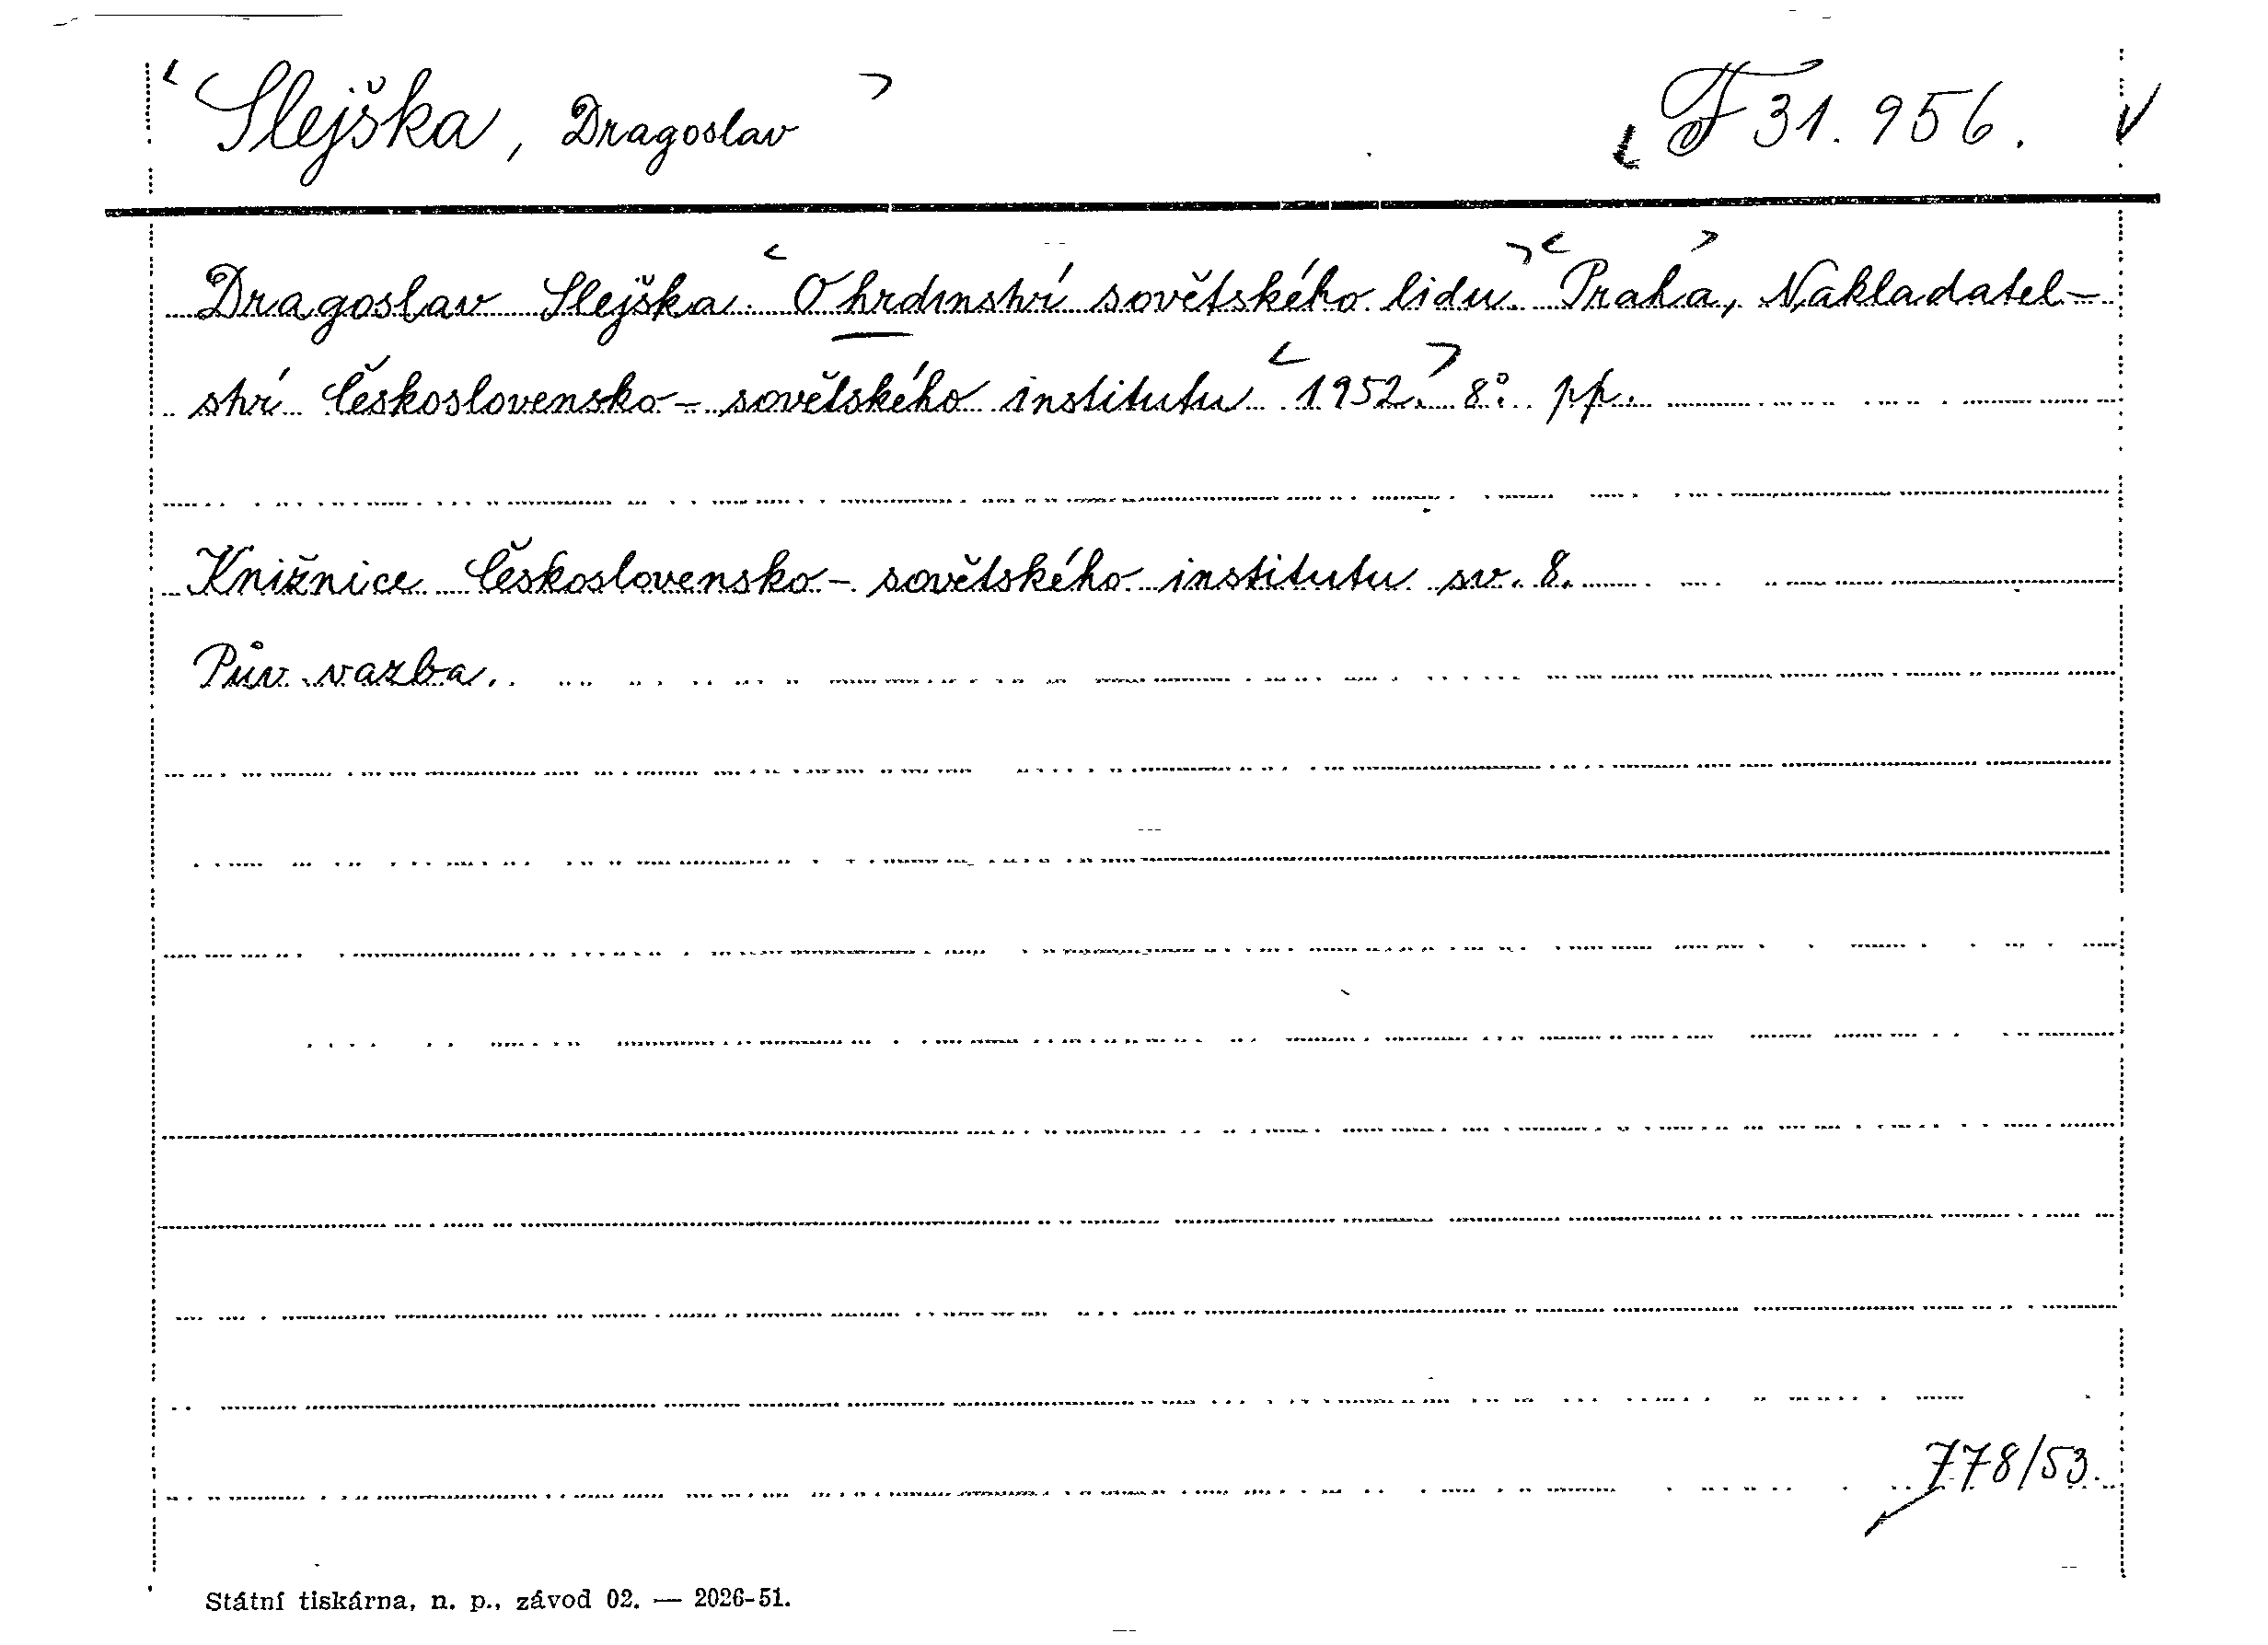 Slejška, Dragoslav F 31.956.
Dragoslav Slejška. O hrdinství sovětského lidu. Praha, Nakladatel-
ství Československo-sovětského institutu 1952. 8°. pp.
Knižnice Československo-sovětského institutu sv. 8.
Pův. vazba.
778/53.
Státní tiskárna, n. p., závod 02. — 2026-51.